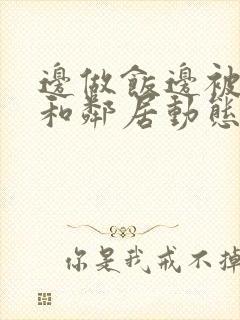 邊做飯邊被
和鄰居動態
你是我戒不掉